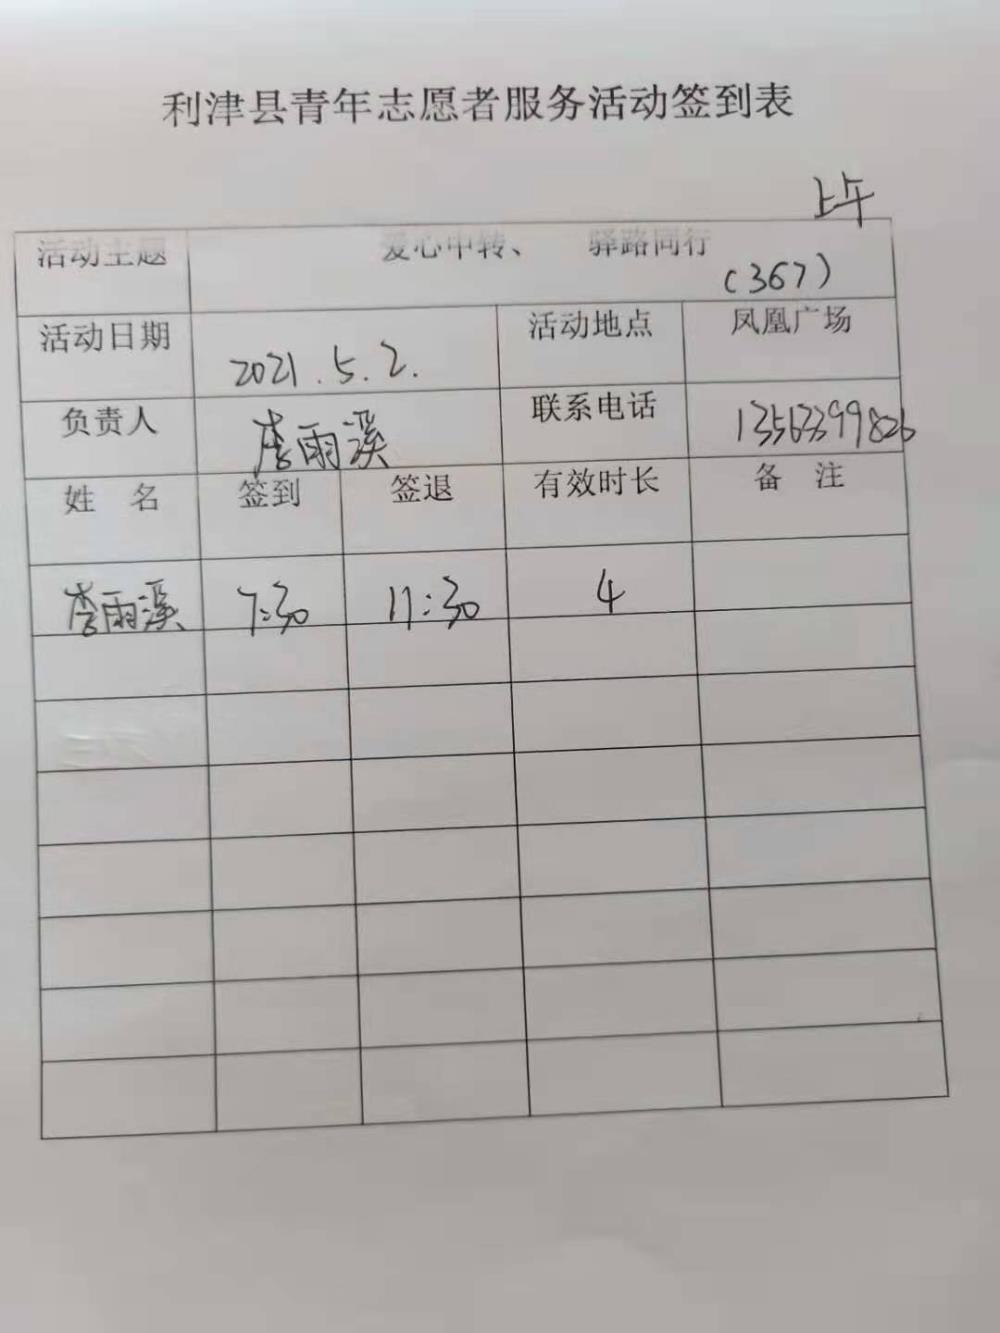 利津县青年志愿者服务活动签到表
上午
活动主题 爱心中转、 驿路同行
（367）
活动日期 2021.5.2. 活动地点 凤凰广场
负责人 李雨溪 联系电话 13563399826
姓 名 签到 签退 有效时长 备 注
李雨溪 7:30 11:30 4